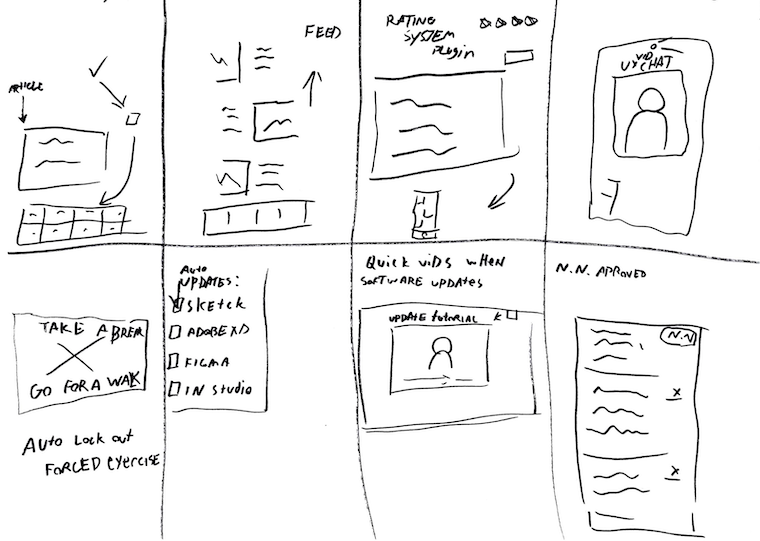 ARTICLE
FEED
RATING
SYSTEM
PLUGIN
VID
UX CHAT
TAKE A BREAK
GO FOR A WAK
AUTO LOCK OUT
FORCED EXERCISE
AUTO
UPDATES:
SKETCH
ADOBE XD
FIGMA
IN STUDIO
QUICK VIDS WHEN
SOFTWARE UPDATES
UPDATE TUTORIAL
X
N.N. APROVED
N.N
X
X